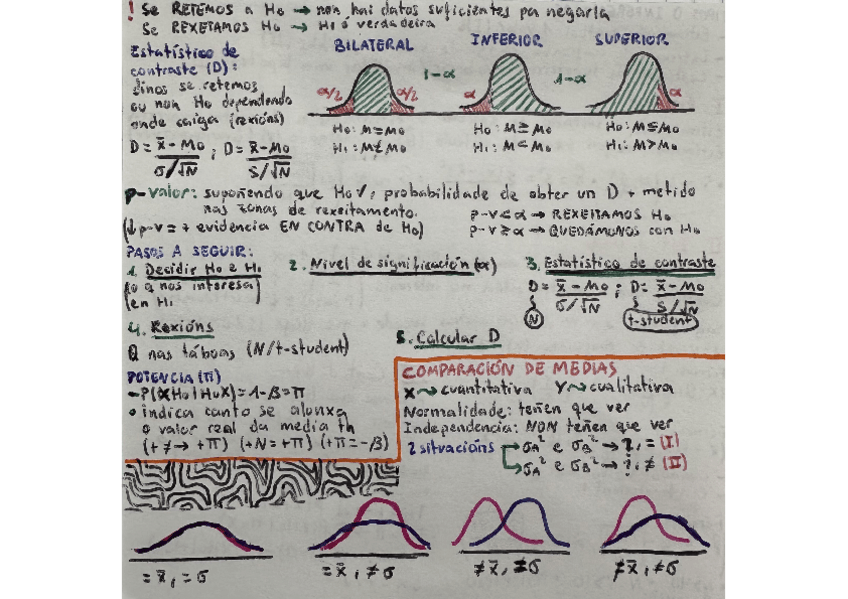 ! Se RETEMOS a Ho → non hai datos suficientes pa negarla
Se REXEITAMOS Ho → H1 é verdadeira
Estatístico de
contraste (D):
dinos se retemos
ou non Ho dependendo
onde caiga (rexións)
D = x̄ - Mo / σ/√N ; D = x̄ - Mo / S/√N
BILATERAL INFERIOR SUPERIOR
α/2 α/2 1-α α 1-α α
Ho: M = Mo Ho: M ≥ Mo Ho: M ≤ Mo
H1: M ≠ Mo H1: M < Mo H1: M > Mo
p-valor: supoñendo que Ho V, probabilidade de obter un D + metido
nas zonas de rexeitamento.
(↓p-v = + evidencia EN CONTRA de Ho)
p-v < α → REXEITAMOS Ho
p-v ≥ α → QUEDÁMONOS con Ho
PASOS A SEGUIR:
1. Decidir Ho e H1
(o q nos interesa)
(en H1
2. Nivel de significación (α)
3. Estatístico de contraste
D = x̄ - Mo / σ/√N ; D = x̄ - Mo / S/√N
N t-student
4. Rexións
Q nas táboas (N/t-student)
5. Calcular D
POTENCIA (π)
-P(XHo|HoX) = 1-β = π
• indica canto se alonxa
o valor real da media
(+ ≠ → +π) (+N = +π) (+π = -β)
COMPARACIÓN DE MEDIAS
X → cuantitativa Y → cualitativa
Normalidade: teñen que ver
Independencia: NON teñen que ver
2 situacións → σA² e σB² → ?, = (I)
→ σA² e σB² → ?, ≠ (II)
= x̄, = σ = x̄, ≠ σ ≠ x̄, = σ ≠ x̄, ≠ σ